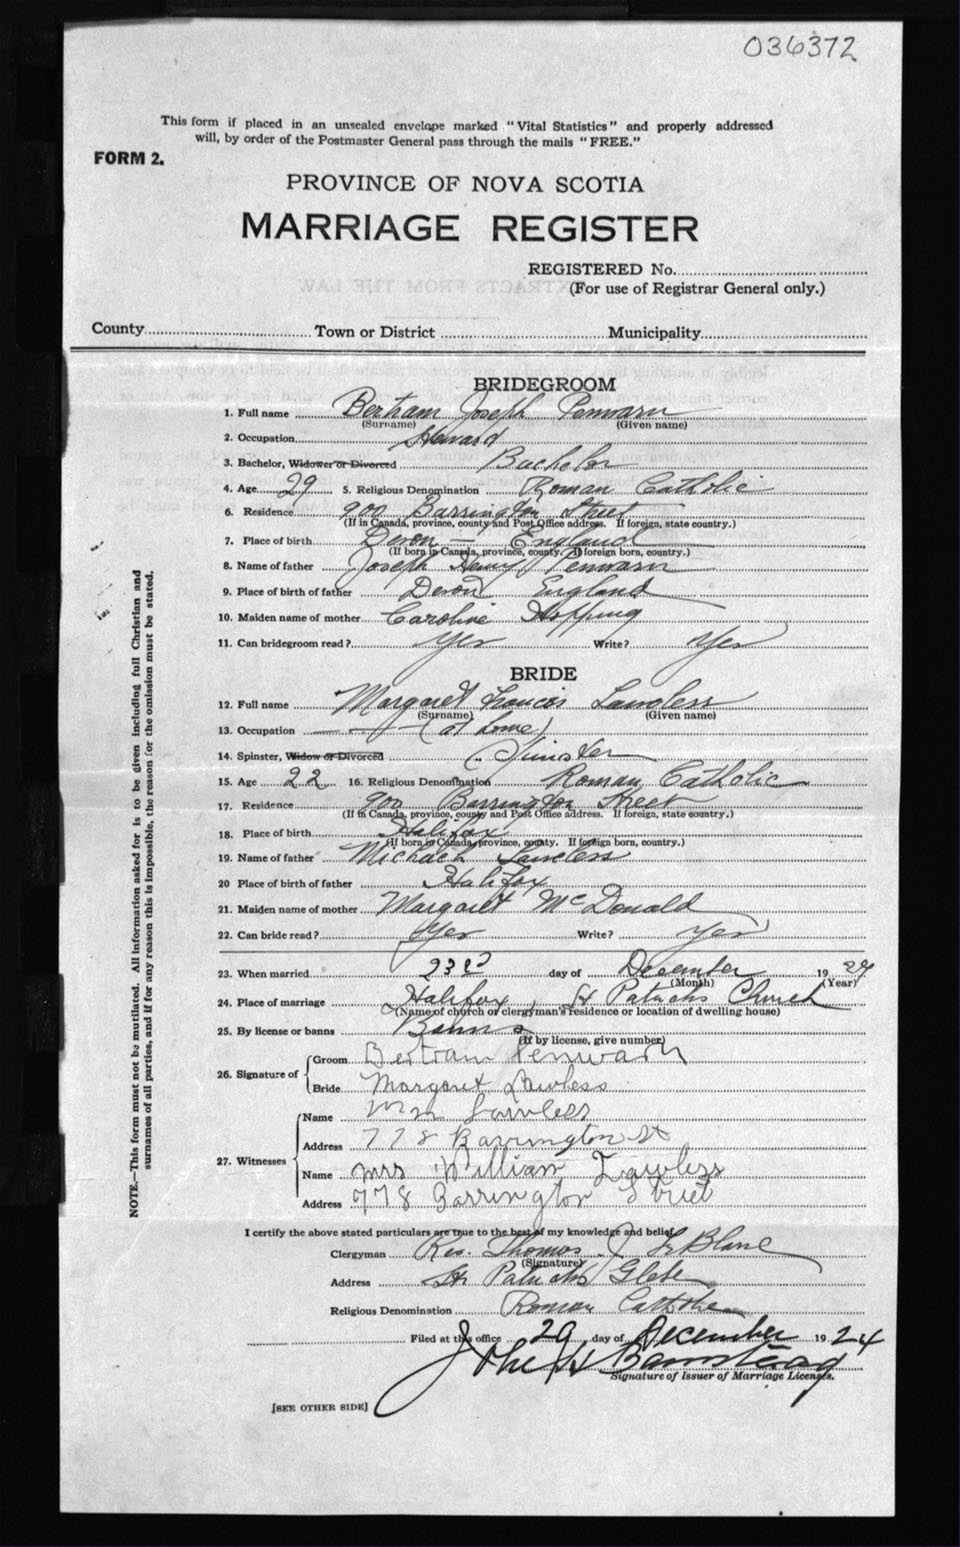 036372
This form if placed in an unsealed envelope marked "Vital Statistics" and properly addressed
will, by order of the Postmaster General pass through the mails "FREE."
FORM 2.
PROVINCE OF NOVA SCOTIA
MARRIAGE REGISTER
REGISTERED No.
(For use of Registrar General only.)
County Town or District Municipality
BRIDEGROOM
1. Full name Bertram Joseph Penwarn
(Surname) (Given name)
2. Occupation Steward
3. Bachelor, Widower or Divorced Bachelor
4. Age 29 5. Religious Denomination Roman Catholic
6. Residence 900 Barrington Street
(If in Canada, province, county and Post Office address. If foreign, state country.)
7. Place of birth Devon - England
(If born in Canada, province, county. If foreign born, country.)
8. Name of father Joseph Henry Penwarn
9. Place of birth of father Devon England
10. Maiden name of mother Caroline Hopping
11. Can bridegroom read? Yes Write? Yes
BRIDE
12. Full name Margaret Francis Lawless
(Surname) (Given name)
13. Occupation (at home)
14. Spinster, Widow or Divorced Spinster
15. Age 22 16. Religious Denomination Roman Catholic
17. Residence 900 Barrington Street
(If in Canada, province, county and Post Office address. If foreign, state country.)
18. Place of birth Halifax
(If born in Canada, province, county. If foreign born, country.)
19. Name of father Michael Lawless
20 Place of birth of father Halifax
21. Maiden name of mother Margaret McDonald
22. Can bride read? Yes Write? Yes
23. When married 23rd day of December 1924
(Month) (Year)
24. Place of marriage Halifax, St Patricks Church
(Name of church or clergyman's residence or location of dwelling house)
25. By license or banns Banns
(If by license, give number)
26. Signature of Groom Bertram Penwarn
Bride Margaret Lawless
27. Witnesses Name Wm Lawless
Address 778 Barrington St
Name Mrs William Lawless
Address 778 Barrington Street
I certify the above stated particulars are true to the best of my knowledge and belief.
Clergyman Rev. Thomas LeBlanc
(Signature)
Address St Patricks Glebe
Religious Denomination Roman Catholic
Filed at this office 29 day of December 1924
Signature of Issuer of Marriage Licenses.
[SEE OTHER SIDE]
NOTE.—This form must not be mutilated. All information asked for is to be given including full Christian and
surnames of all parties, and if for any reason this is impossible, the reason for the omission must be stated.